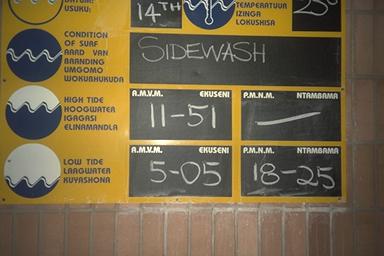 DATUM:
USUKU:
14TH
TEMPERATUUR
IZINGA
LOKUSHISA
25°
CONDITION
OF SURF
AARD VAN
BRANDING
UMGOMO
WOKUBHUKUDA
SIDEWASH
HIGH TIDE
HOOGWATER
IGAGASI
ELINAMANDLA
A.M.V.M. EKUSENI
11-51
P.M.N.M. NTAMBAMA
—
LOW TIDE
LAAGWATER
KUYASHONA
A.M.V.M. EKUSENI
5-05
P.M.N.M. NTAMBAMA
18-25